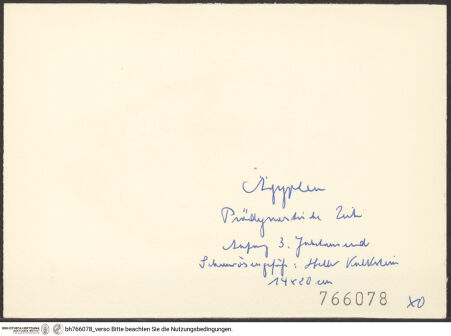 Ägypten
Prädynastische Zeit
Anfang 3. Jahrtausend
Schnurösengefäß: Heller Kalkstein
14x20 cm
766078 XO
BIBLIOTHECA HERTZIANA
bh766078_verso Bitte beachten Sie die Nutzungsbedingungen.